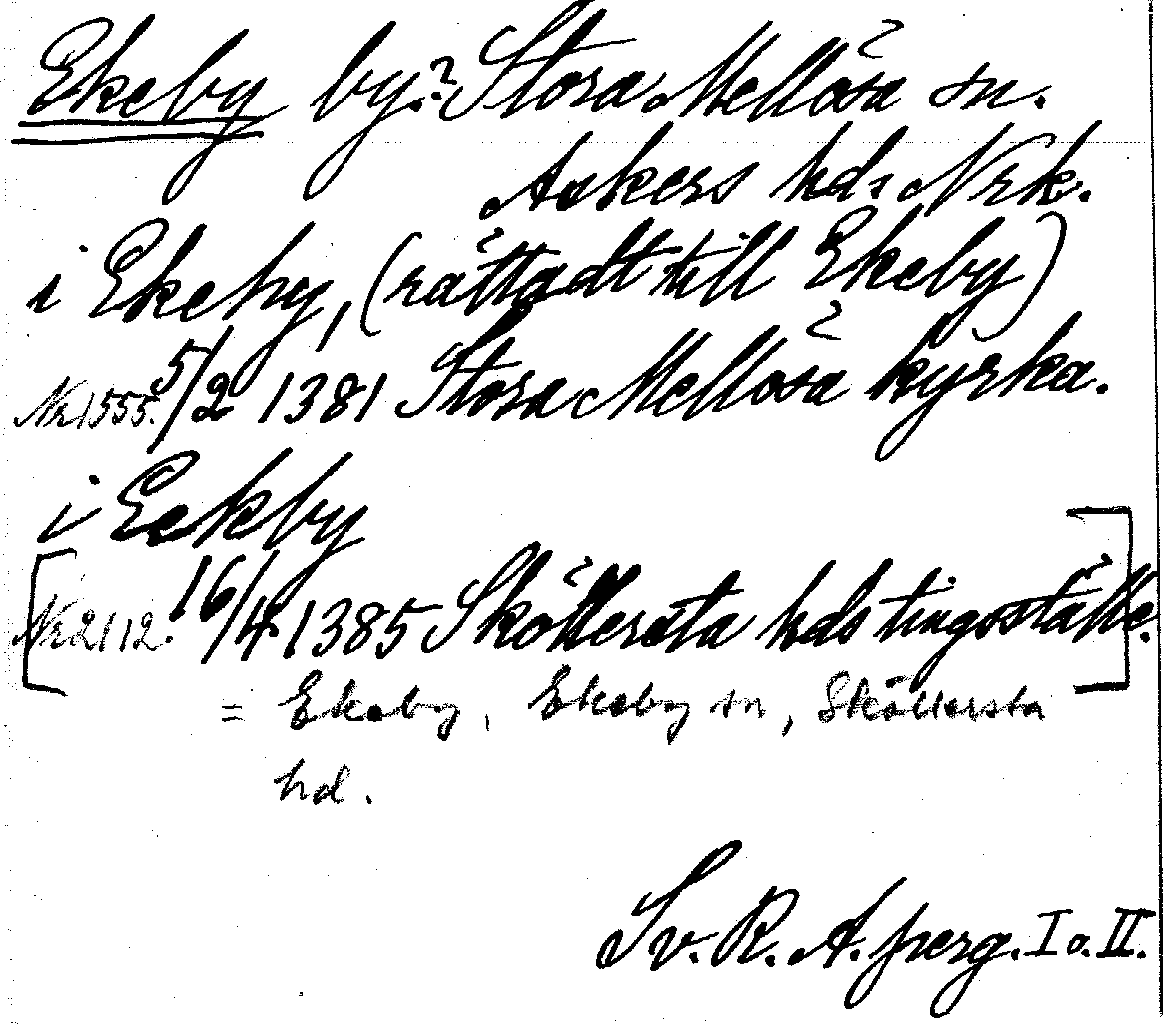 Ekeby by.? Stora Mellösa sn.
Askers hd. Nrk.
i Ekehy, (rättadt till Ekeby)
Nr 1555. 5/2 1381 Stora Mellösa kyrka.
i Eekby
[Nr 2112. 16/4 1385 Sköllersta hds tingsställe.]
= Ekeby, Ekeby sn, Sköllersta
hd.
Sv. R. A. perg. I o. II.